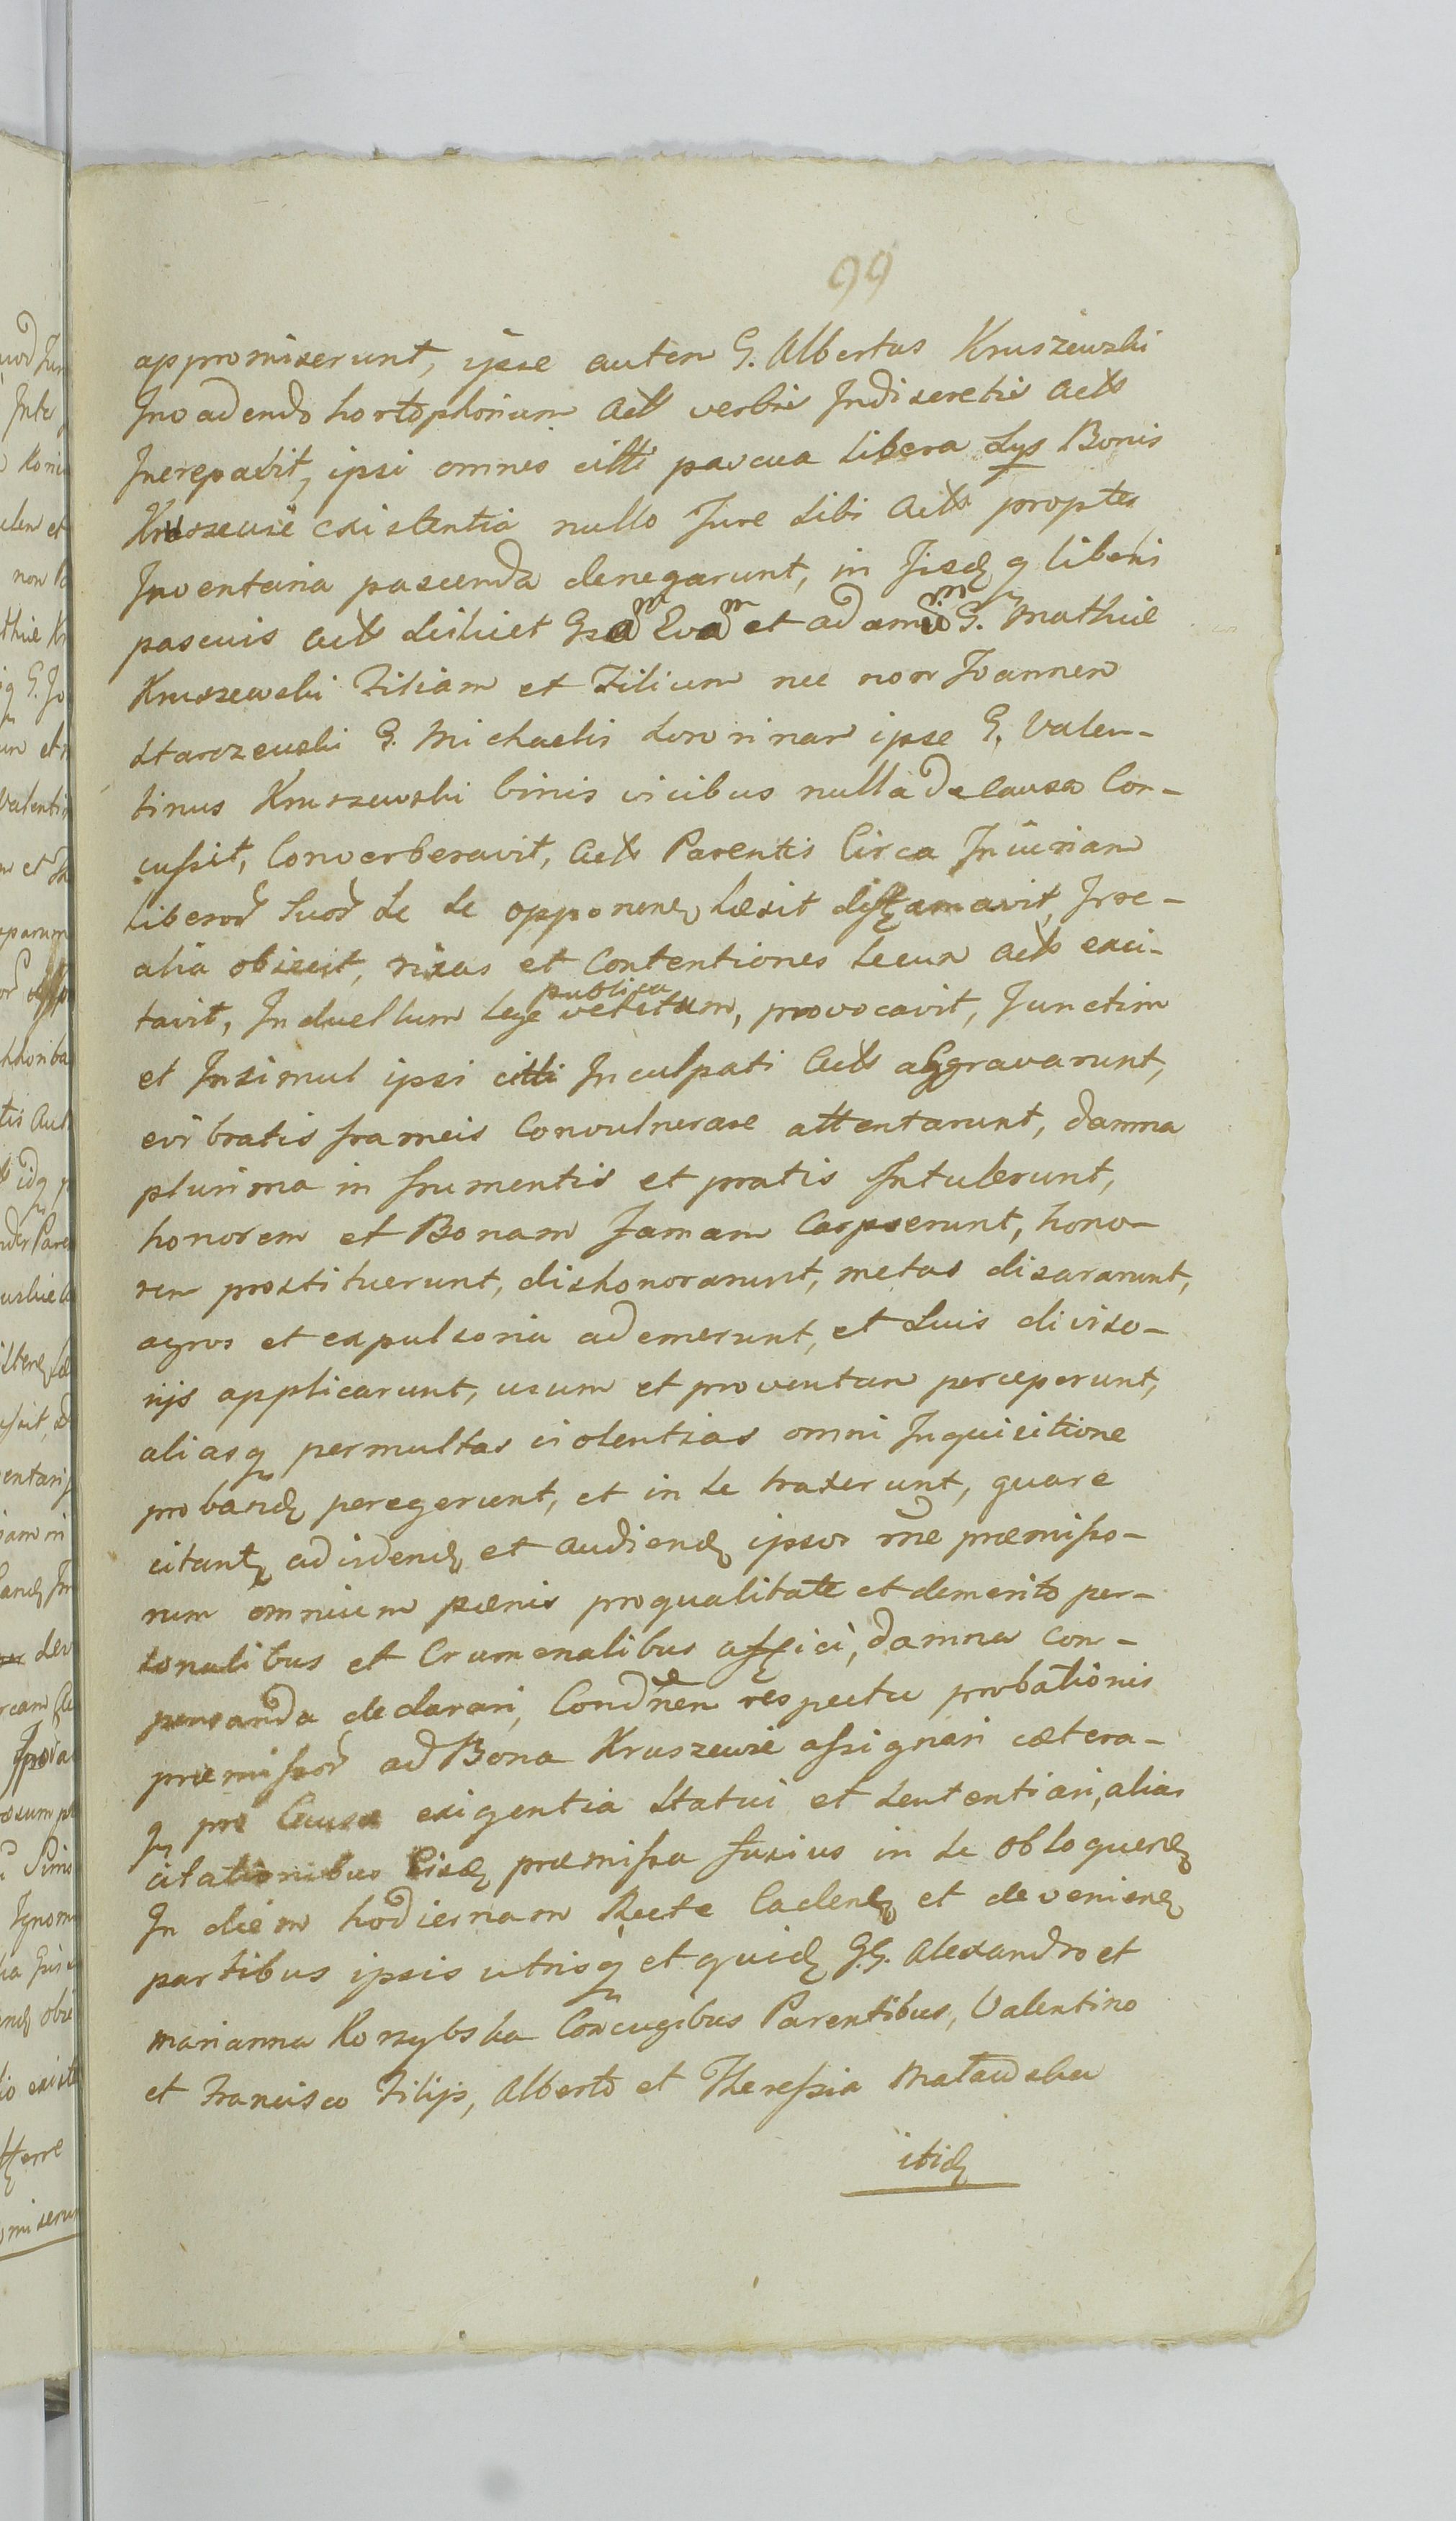 99
appromiserunt, ipse autem G. Albertus Kruszewski
Invadendo hortophorium Actt verbis Indiscretis Actt
Increpavit, ipsi omnes citti pascua libera Lys Bonis
Kruszewie existentia nullo Jure sibi Actt propter
Inventaria pascenda denegarunt, in Jisdq liberis
pascuis Actt scilicet Gsam Evam et adamum G. Mathiæ
Kruszewski Filiam et Filium nec non Joannem
Starozewski G. Michaelis ipse G. Valen-
tinus Kruszewski binis vicibus nulla De Causa Con-
cussit, Converberavit, Actt Parentes Circa Injuriam
liberor Suor se se opponen læsit diffamavit, Irre-
alia obiecit, rixas et Contentiones secum Actt exci-
tavit, In duellum lege publica vetitum, provocavit, Junctim
et Insimul ipsi citti Inculpati Actt aggravarunt,
evibratis frameis Convulnerare attentarunt, damna
plurima in frumentis et pratis Intulerunt,
honorem et Bonam Famam Carpserunt, hono-
rem prostituerunt, dishonorarunt, metas disararunt,
agros et expulsoria ademerunt, et Suis diviso-
rijs applicarunt, usum et proventum perceperunt,
aliasq permultas violentias omni Inquisitione
proband peregerunt, et in se traxerunt, quare
citant ad videnđ et audienđ ipsos rne præmisso-
rum omnium pænis pro qualitate et demerito per-
sonalibus et Crumenalibus affici, damna com-
pensanda declarari, Condnem respectu probationis
præmissor ad Bona Kruszewie assignari cætera-
q pro Causæ exigentia Statui et Sententiari, alias
citationibus Eisd præmissa fusius in se obloquend
In diem hodiernam Recte Cadend et deveniend
partibus ipsis utrisq et quid G.G. Alexandro et
Marianna Korzybska Conjugibus Parentibus, Valentino
et Francisco Filijs, Alberto et Theressia
itid